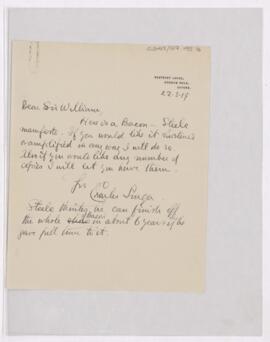 22.2.19
Dear Sir William,
Here is a Bacon - Steele
manifesto. If you would like it shortened
or amplified in any way I will do so
Also if you would like any number of
copies I will let you have them.
Charles Singer
Steele thinks we can finish off
the whole Bacon in about 6 years if he
gave full time to it.